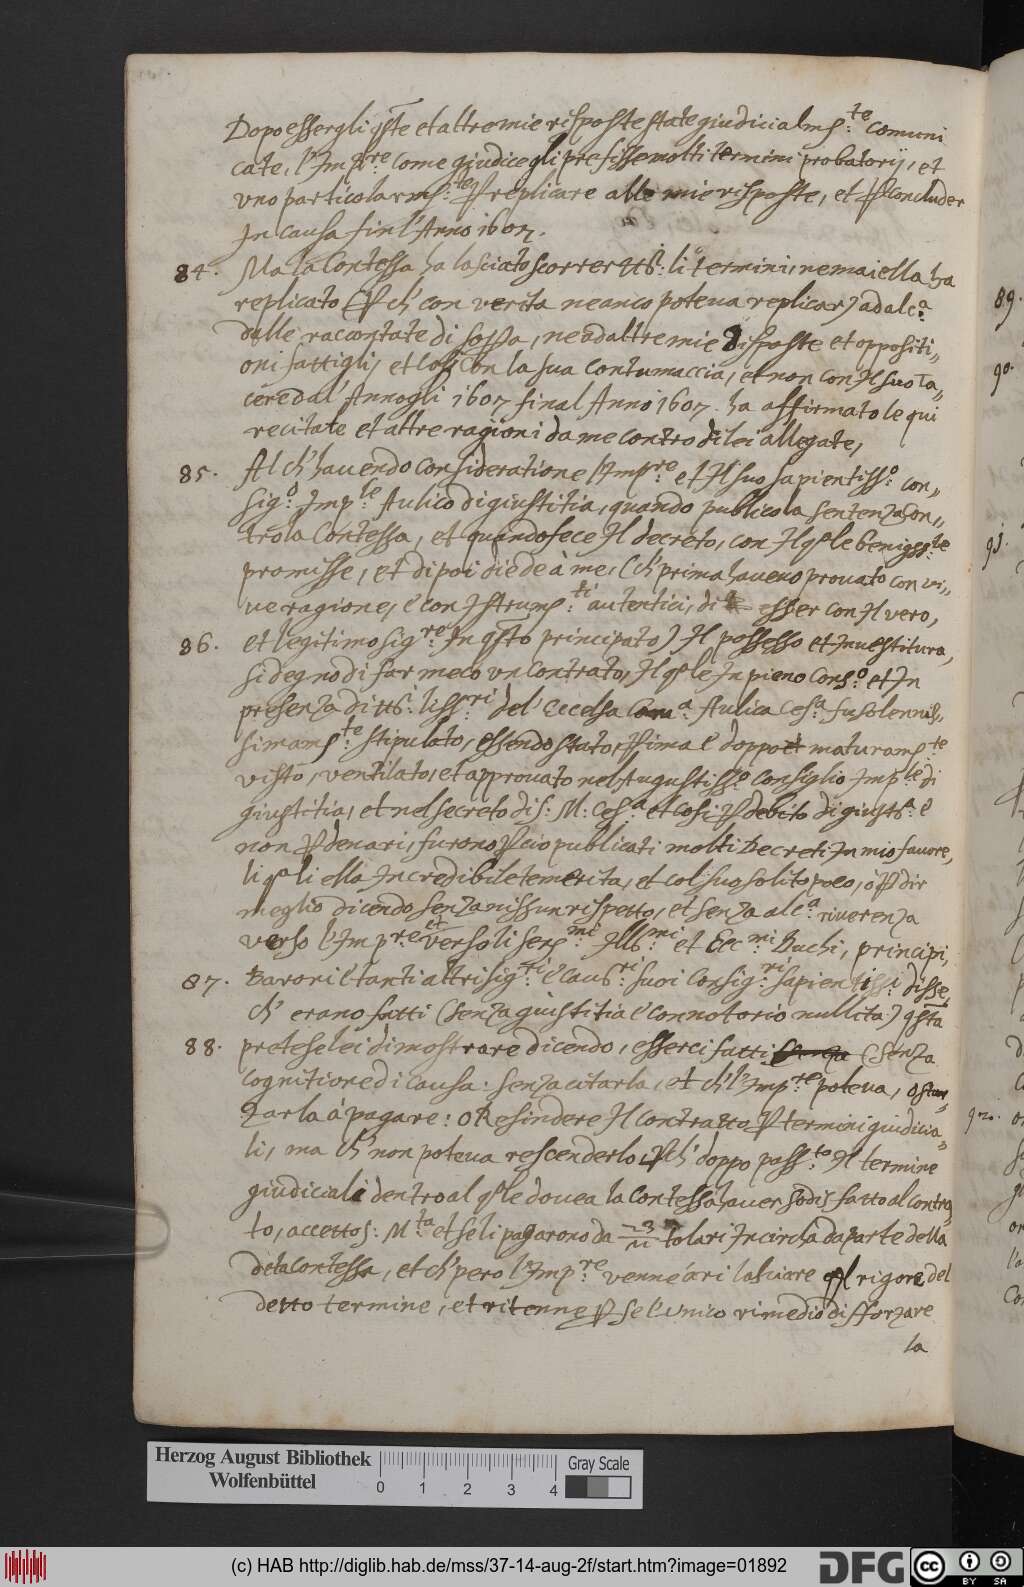 Dopo essergli qste et altre mie risposte state giudicialmte comuni
cate, l'Impre come giudice gli prefisse molti termini probatorij, et
uno particolarmte replicare alle mie risposte, et concluder
In causa fin l'Anno 1607.
84. Ma la Contessa ha lasciato scorrer li termini, ne mai ella ha
replicato ( ch' con verita ne anco poteua replicar) ad alca
delle raccontate di sopra, ne ad altre mie risposte et oppositi„
oni fattigli, et cosi con la sua contumaccia, et non con Il suo ta„
cere dal' Anno gli 1607 fin al Anno 1607. ha affirmato le qui
recitate et altre ragioni da me contro di lei allegate,
85. Al ch' hauendo consideratione l'Impre et Il suo sapientisso con„
sigo Imple Aulico di giustitia, quando publico la sentenza con„
tro la Contessa, et quando fece Il decreto, con Il qle
promisse, et di poi diede à me, (ch' prima haueuo prouato con vi„
ue ragione, e con Istrumti autentici, di esser con Il vero,
86. et legitimo sigre In qsto principato) Il possesso et Inuestitura,
si degno di far meco un contrato, Il qle In pieno conso et In
presenza di del' Eccelsa Cama Aulica Cesa fu solennis„
simamte stipulato, essendo stato, prima e doppo maturamte
visto, ventilato, et approuato nel Augustisso consiglio Imple di
giustitia, et nel secreto di S: M: Cesa et cosi debito di giusta e
non denari, furono cio publicati molti Decreti In mio fauore,
li qli ella Incredibile temerita, et col suo solito poco, ò dir
meglio dicendo senza nissun rispetto, et senza alca riuerenza
verso l'Impre et verso li sermi Illmi et Eccmi Duchi, principi,
87. Baroni e tanti altri sigri e suoi consigri sapientissi disse,
ch' erano fatti (senza giustitia e con notorio nullita) qsta
88. pretese lei dimostrare dicendo, esserci fatti senza (senza
cognitione di causa: senza citarla, et ch' l'Impre poteua, o sfor„
zarla à pagare: o Resindere Il contratto termini giudicia„
li, ma ch' non poteua rescenderlo ch' doppo passto Il termine
giudiciali dentro al qle douea la Contessa hauer sodisfatto al contra„
to, accetto S: Mta et se li pagarono da tolari In circha da parte della
deta Contessa, et ch' pero l'Impre lasciare Il rigore del
detto termine, et ritenne se l'unico rimedio di sforzare
la
89.
90.
91.
92.
Herzog August Bibliothek
Wolfenbüttel
0 1 2 3 4
Gray Scale
(c) HAB http://diglib.hab.de/mss/37-14-aug-2f/start.htm?image=01892
DFG
cc BY SA